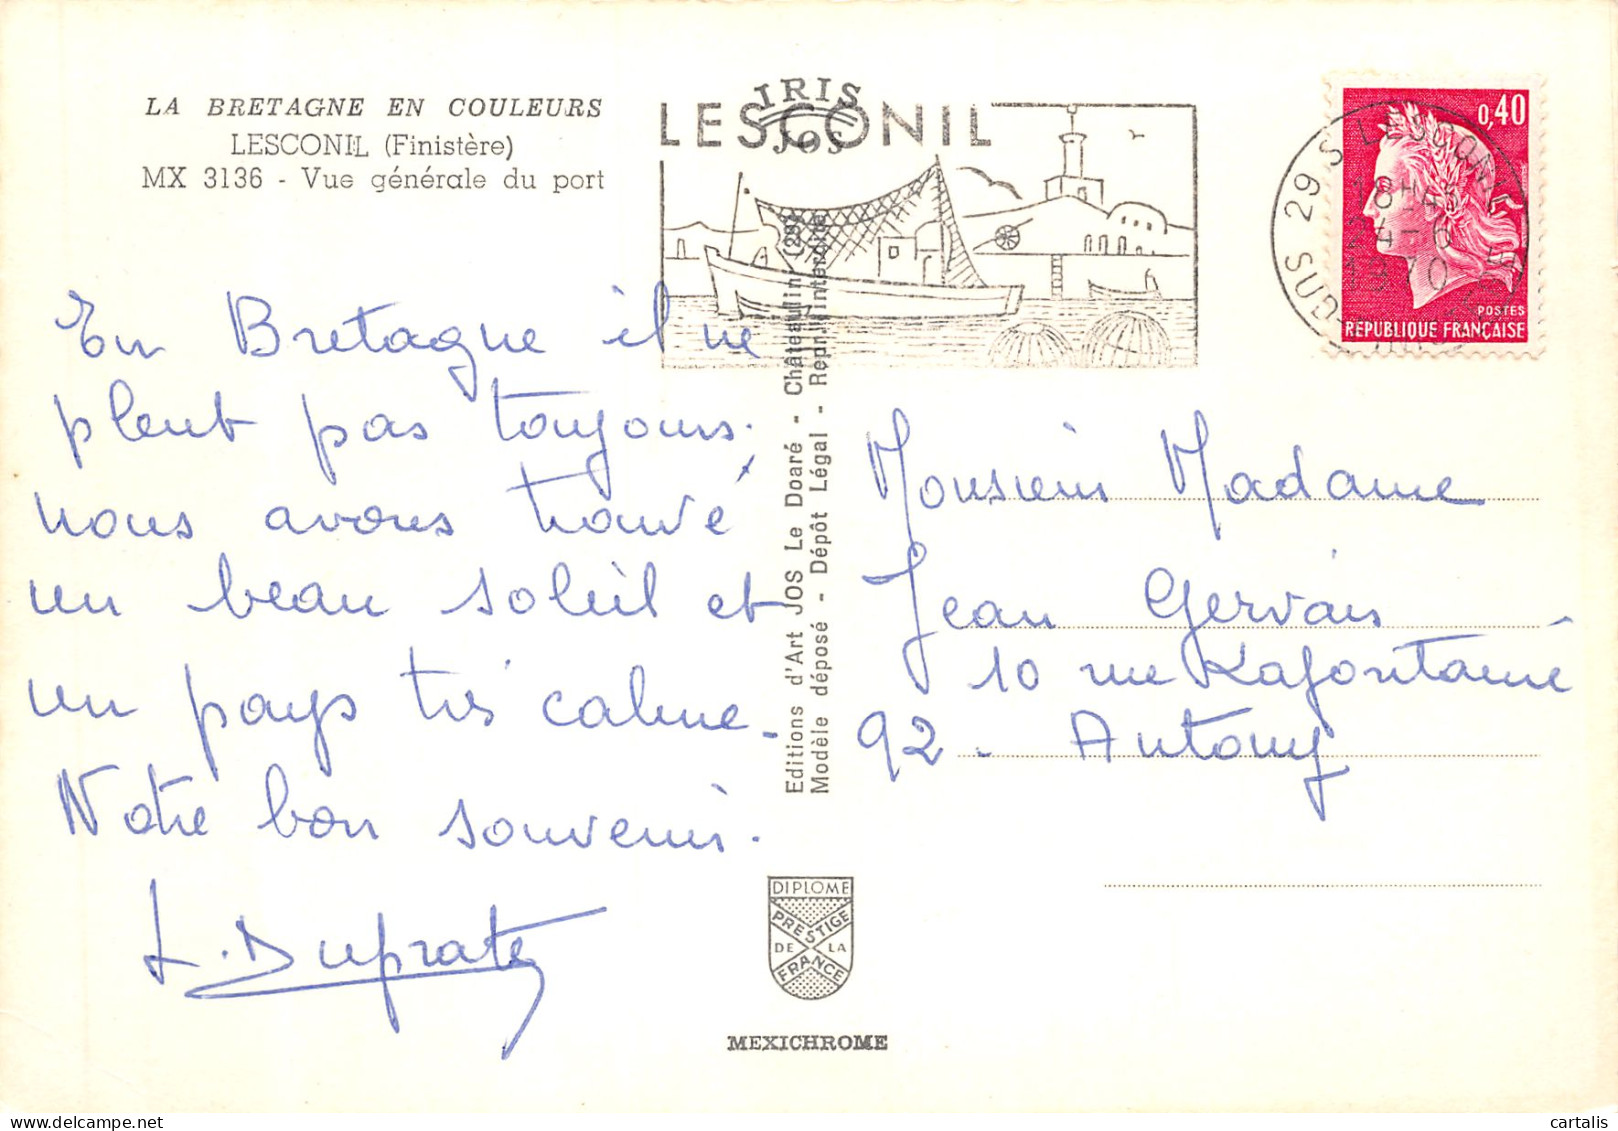 LA BRETAGNE EN COULEURS
LESCONIL (Finistère)
MX 3136 - Vue générale du port
IRIS
JOS
LESCONIL
29 S LESCONIL
18H45
24-6
1970
0,40
POSTES
RÉPUBLIQUE FRANÇAISE
En Bretagne il ne
pleut pas toujours.
nous avons trouvé
un beau soleil et
un pays très calme.
Notre bon souvenir.
L. Duprate
Editions d'Art JOS Le Doaré - Châteaulin (29)
Modèle déposé - Dépôt Légal - Repr. interdite
Monsieur Madame
Jean Gervais
10 rue Lafontaine
92 - Antony
DIPLOME
PRESTIGE
DE LA
FRANCE
MEXICHROME
cartalis